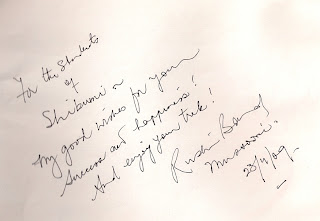 For the Students
of
Shibumi —
my good wishes for your
success and happiness!
And enjoy your trek!
Ruskin Bond
Mussoorie.
28/4/09